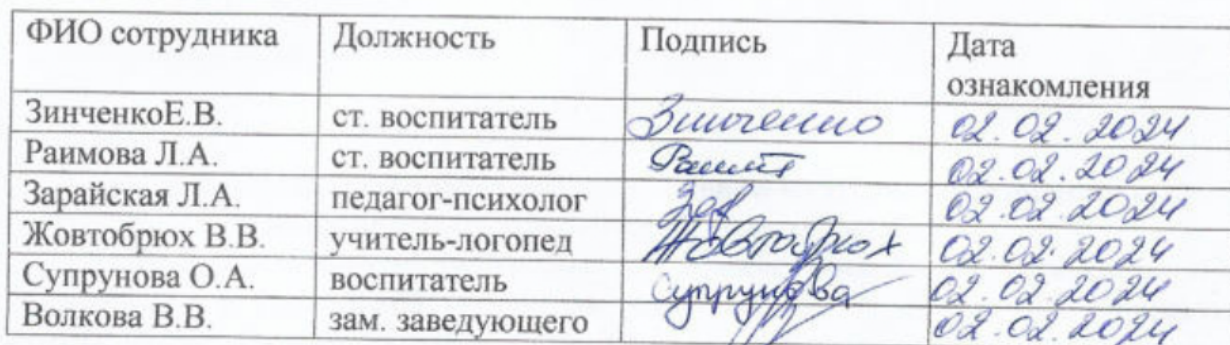 ФИО сотрудника Должность Подпись Дата
ознакомления
ЗинченкоЕ.В. ст. воспитатель Зинченко 02.02.2024
Раимова Л.А. ст. воспитатель 02.02.2024
Зарайская Л.А. педагог-психолог Зар 02.02.2024
Жовтобрюх В.В. учитель-логопед Жовтобрюх 02.02.2024
Супрунова О.А. воспитатель Супрунова 02.02.2024
Волкова В.В. зам. заведующего 02.02.2024